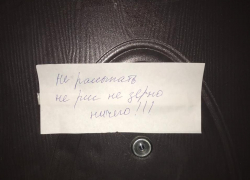 Не работать
не рис не зерно
ничего!!!